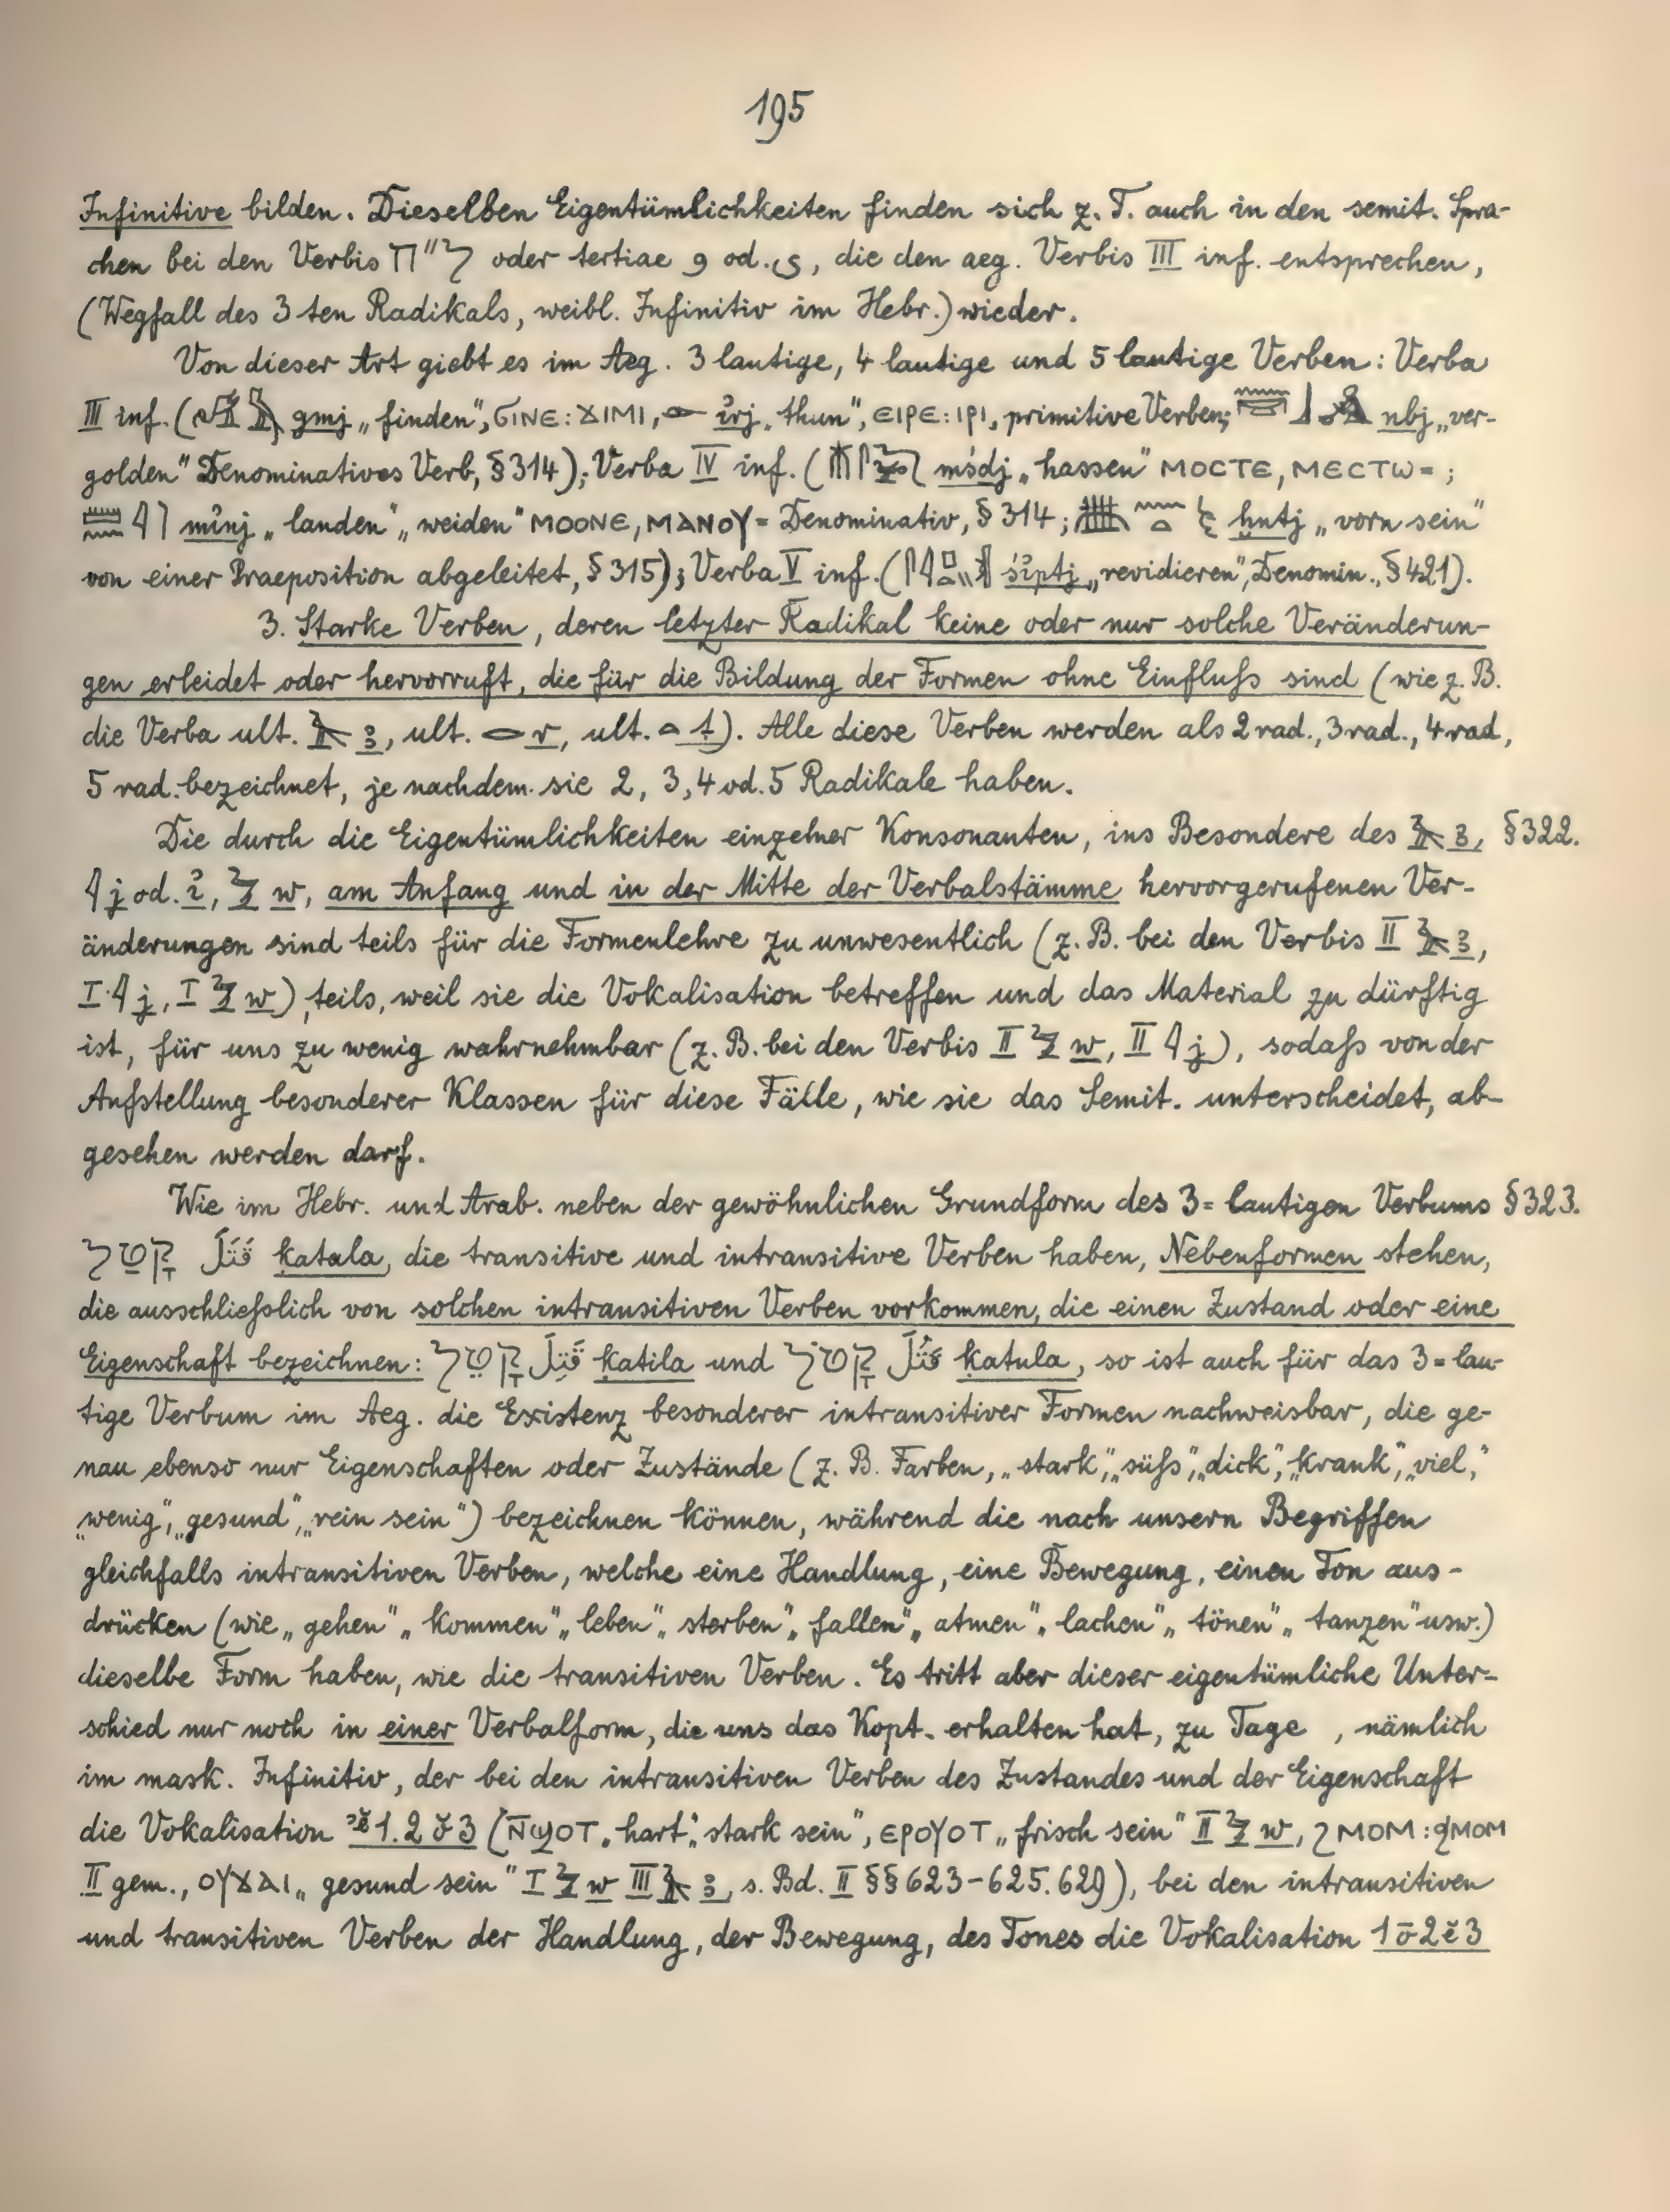 195
Infinitive bilden. Dieselben Eigentümlichkeiten finden sich z. T. auch in den semit. Spra-
chen bei den Verbis ל״ה oder tertiae و od. ي, die den aeg. Verbis III inf. entsprechen,
(Wegfall des 3 ten Radikals, weibl. Infinitiv im Hebr.) wieder.
Von dieser Art giebt es im Aeg. 3 lautige, 4 lautige und 5 lautige Verben: Verba
III inf. (gmj „finden", ϬΙΝΕ: ϪΙΜΙ, 𓁹 ỉrj „thun", ΕΙΡΕ: ΙΡΙ, primitive Verben; nbj „ver-
golden" Denominatives Verb, § 314); Verba IV inf. (mśdj „hassen" ΜΟCΤΕ, ΜΕCΤⲰ= ;
mỉnj „landen", „weiden" ΜΟΟΝΕ, ΜΑΝΟΥ= Denominativ, § 314; ḫntj „vorn sein"
von einer Praeposition abgeleitet, § 315); Verba V inf. (śỉptj „revidieren", Denomin., § 421).
3. Starke Verben, deren letzter Radikal keine oder nur solche Veränderun-
gen erleidet oder hervorruft, die für die Bildung der Formen ohne Einfluſs sind (wie z. B.
die Verba ult. 𓄿 ꜣ, ult. 𓂋 r, ult. 𓏏 t). Alle diese Verben werden als 2 rad., 3 rad., 4 rad.,
5 rad. bezeichnet, je nachdem sie 2, 3, 4 od. 5 Radikale haben.
Die durch die Eigentümlichkeiten einzelner Konsonanten, ins Besondere des 𓄿 ꜣ, § 322.
𓇋 j od. ỉ, 𓅱 w, am Anfang und in der Mitte der Verbalstämme hervorgerufenen Ver-
änderungen sind teils für die Formenlehre zu unwesentlich (z. B. bei den Verbis II 𓄿 ꜣ,
I 𓇋 j, I 𓅱 w), teils, weil sie die Vokalisation betreffen und das Material zu dürftig
ist, für uns zu wenig wahrnehmbar (z. B. bei den Verbis II 𓅱 w, II 𓇋 j), sodaſs von der
Aufstellung besonderer Klassen für diese Fälle, wie sie das Semit. unterscheidet, ab-
gesehen werden darf.
Wie im Hebr. und Arab. neben der gewöhnlichen Grundform des 3=lautigen Verbums § 323.
קָטַל قَتَلَ ḳatala, die transitive und intransitive Verben haben, Nebenformen stehen,
die ausschlieſslich von solchen intransitiven Verben vorkommen, die einen Zustand oder eine
Eigenschaft bezeichnen: קָטֵל قَتِلَ ḳatila und קָטֹל قَتُلَ ḳatula, so ist auch für das 3=lau-
tige Verbum im Aeg. die Existenz besonderer intransitiver Formen nachweisbar, die ge-
nau ebenso nur Eigenschaften oder Zustände (z. B. Farben, „stark", „süſs", „dick", „krank", „viel,"
„wenig", „gesund", „rein sein") bezeichnen können, während die nach unsern Begriffen
gleichfalls intransitiven Verben, welche eine Handlung, eine Bewegung, einen Ton aus-
drücken (wie „gehen" „kommen" „leben" „sterben" „fallen" „atmen" „lachen" „tönen" „tanzen" usw.)
dieselbe Form haben, wie die transitiven Verben. Es tritt aber dieser eigentümliche Unter-
schied nur noch in einer Verbalform, die uns das Kopt. erhalten hat, zu Tage, nämlich
im mask. Infinitiv, der bei den intransitiven Verben des Zustandes und der Eigenschaft
die Vokalisation ꜣĕ1.2ŏ3 (N̄ϢΟΤ „hart", „stark sein", ΕΡΟΥΟΤ „frisch sein" II 𓅱 w, ϨΜΟΜ: ϦΜΟΜ
II gem., ΟΥϪΑΙ „gesund sein" I 𓅱 w III 𓄿 ꜣ, s. Bd. II §§ 623-625. 629), bei den intransitiven
und transitiven Verben der Handlung, der Bewegung, des Tones die Vokalisation 1ō2ĕ3